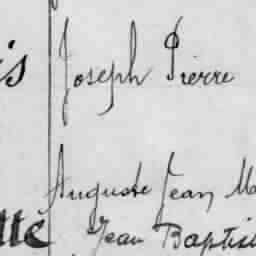 is Joseph Pierre
Auguste Jean Ma
tte Jean Baptis